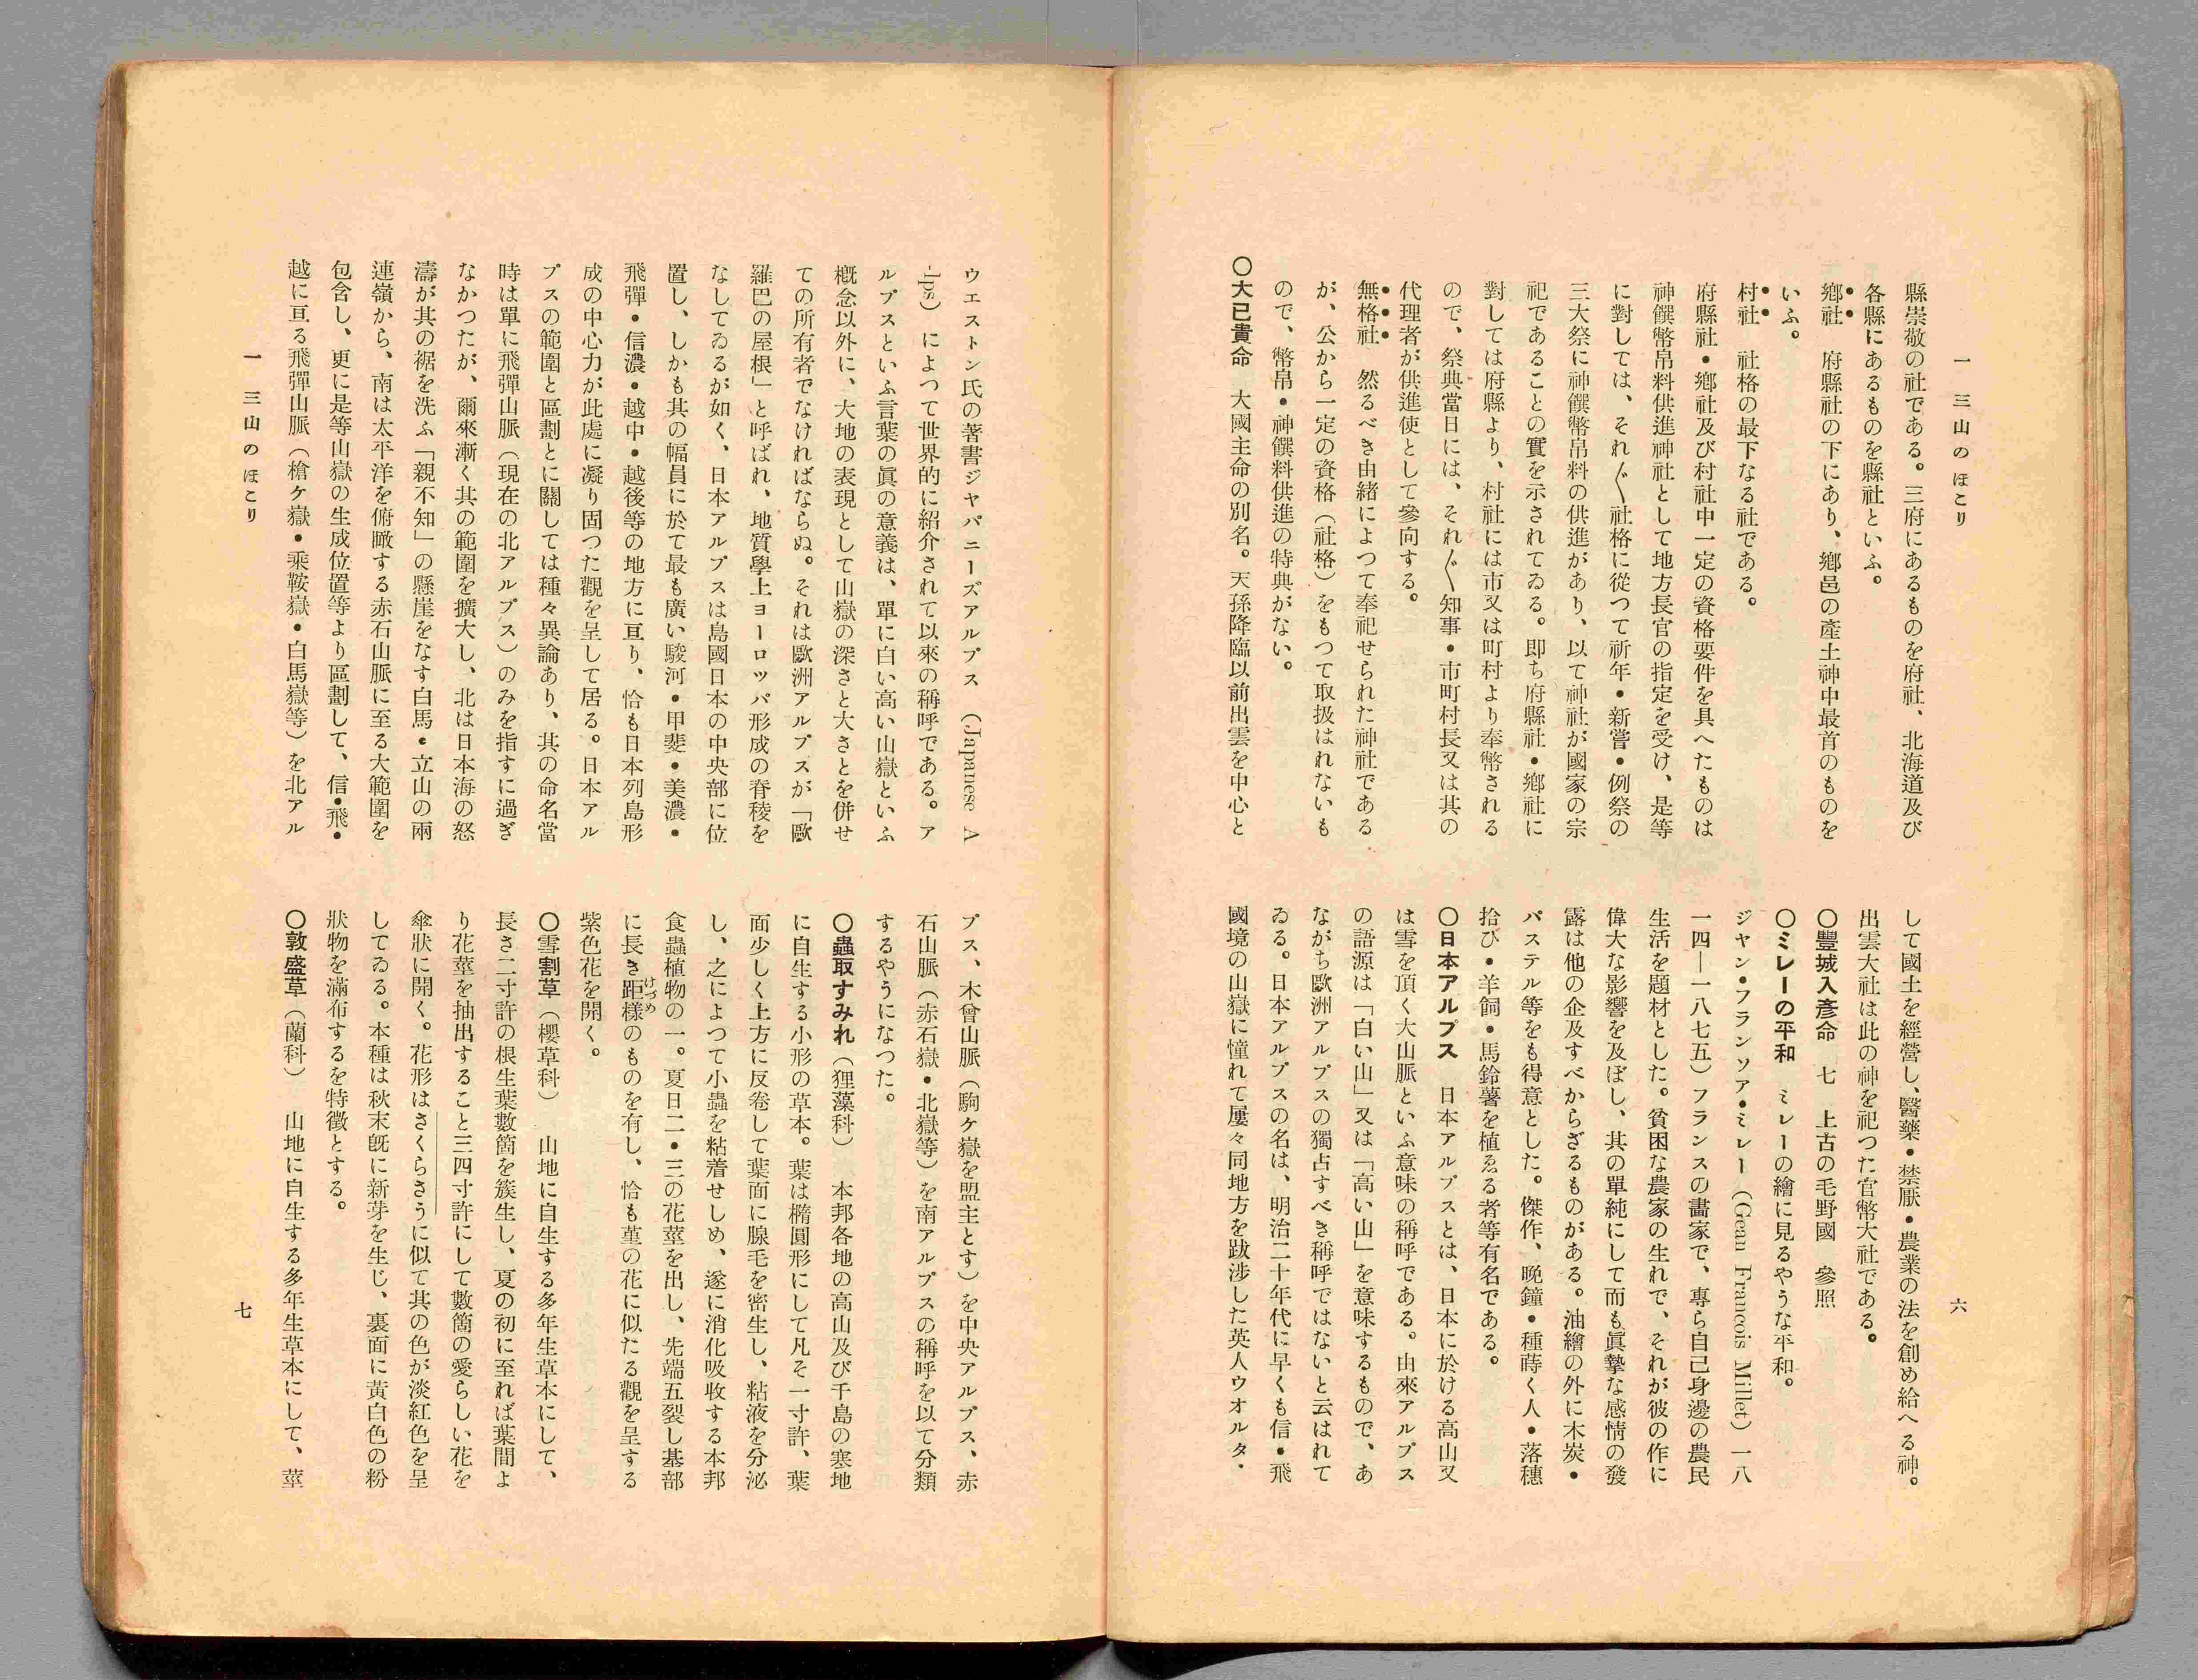 一　三山のほこり
六
縣崇敬の社である。三府にあるものを府社、北海道及び
各縣にあるものを縣社といふ。
鄕社　府縣社の下にあり、鄕邑の產土神中最首のものを
いふ。
村社　社格の最下なる社である。
府縣社・鄕社及び村社中一定の資格要件を具へたものは
神饌幣帛料供進神社として地方長官の指定を受け、是等
に對しては、それ〲社格に從つて祈年・新嘗・例祭の
三大祭に神饌幣帛料の供進があり、以て神社が國家の宗
祀であることの實を示されてゐる。即ち府縣社・鄕社に
對しては府縣より、村社には市又は町村より奉幣される
ので、祭典當日には、それ〲知事・市町村長又は其の
代理者が供進使として參向する。
無格社　然るべき由緒によつて奉祀せられた神社である
が、公から一定の資格（社格）をもつて取扱はれないも
ので、幣帛・神饌料供進の特典がない。
〇大已貴命　大國主命の別名。天孫降臨以前出雲を中心と
して國土を經營し、醫藥・禁厭・農業の法を創め給へる神。
出雲大社は此の神を祀つた官幣大社である。
〇豐城入彥命　七　上古の毛野國　參照
〇ミレーの平和　ミレーの繪に見るやうな平和。
ジャン・フランソア・ミレー（Gean Francois Millet）一八
一四―一八七五）フランスの畫家で、專ら自己身邊の農民
生活を題材とした。貧困な農家の生れで、それが彼の作に
偉大な影響を及ぼし、其の單純にして而も眞摯な感情の發
露は他の企及すべからざるものがある。油繪の外に木炭・
パステル等をも得意とした。傑作、晩鐘・種蒔く人・落穗
拾ひ・羊飼・馬鈴薯を植ゑる者等有名である。
〇日本アルプス　日本アルプスとは、日本に於ける高山又
は雪を頂く大山脈といふ意味の稱呼である。由來アルプス
の語源は「白い山」又は「高い山」を意味するもので、あ
ながち歐洲アルプスの獨占すべき稱呼ではないと云はれて
ゐる。日本アルプスの名は、明治二十年代に早くも信・飛
國境の山嶽に憧れて屢々同地方を跋涉した英人ウオルタ・
ウエストン氏の著書ジヤパニーズアルプス（Japanese A
-lps）によつて世界的に紹介されて以來の稱呼である。ア
ルプスといふ言葉の眞の意義は、單に白い高い山嶽といふ
槪念以外に、大地の表現として山嶽の深さと大さとを併せ
ての所有者でなければならぬ。それは歐洲アルプスが「歐
羅巴の屋根」と呼ばれ、地質學上ヨーロッパ形成の脊稜を
なしてゐるが如く、日本アルプスは島國日本の中央部に位
置し、しかも其の幅員に於て最も廣い駿河・甲斐・美濃・
飛彈・信濃・越中・越後等の地方に亘り、恰も日本列島形
成の中心力が此處に凝り固つた觀を呈して居る。日本アル
プスの範圍と區劃とに關しては種々異論あり、其の命名當
時は單に飛彈山脈（現在の北アルプス）のみを指すに過ぎ
なかつたが、爾來漸く其の範圍を擴大し、北は日本海の怒
濤が其の裾を洗ふ「親不知」の懸崖をなす白馬・立山の兩
連嶺から、南は太平洋を俯瞰する赤石山脈に至る大範圍を
包含し、更に是等山嶽の生成位置等より區劃して、信・飛・
越に亘る飛彈山脈（槍ケ嶽・乘鞍嶽・白馬嶽等）を北アル
プス、木曾山脈（駒ケ嶽を盟主とす）を中央アルプス、赤
石山脈（赤石嶽・北嶽等）を南アルプスの稱呼を以て分類
するやうになつた。
〇蟲取すみれ（狸藻科）　本邦各地の高山及び千島の寒地
に自生する小形の草本。葉は橢圓形にして凡そ一寸許、葉
面少しく上方に反卷して葉面に腺毛を密生し、粘液を分泌
し、之によつて小蟲を粘着せしめ、遂に消化吸收する本邦
食蟲植物の一。夏日二・三の花莖を出し、先端五裂し基部
に長き距樣のものを有し、恰も菫の花に似たる觀を呈する
けづめ
紫色花を開く。
〇雪割草（櫻草科）　山地に自生する多年生草本にして、
長さ二寸許の根生葉數箇を簇生し、夏の初に至れば葉間よ
り花莖を抽出すること三四寸許にして數箇の愛らしい花を
傘狀に開く。花形はさくらさうに似て其の色が淡紅色を呈
してゐる。本種は秋末既に新芽を生じ、裏面に黃白色の粉
狀物を滿布するを特徵とする。
〇敦盛草（蘭科）　山地に自生する多年生草本にして、莖
一　三山のほこり
七